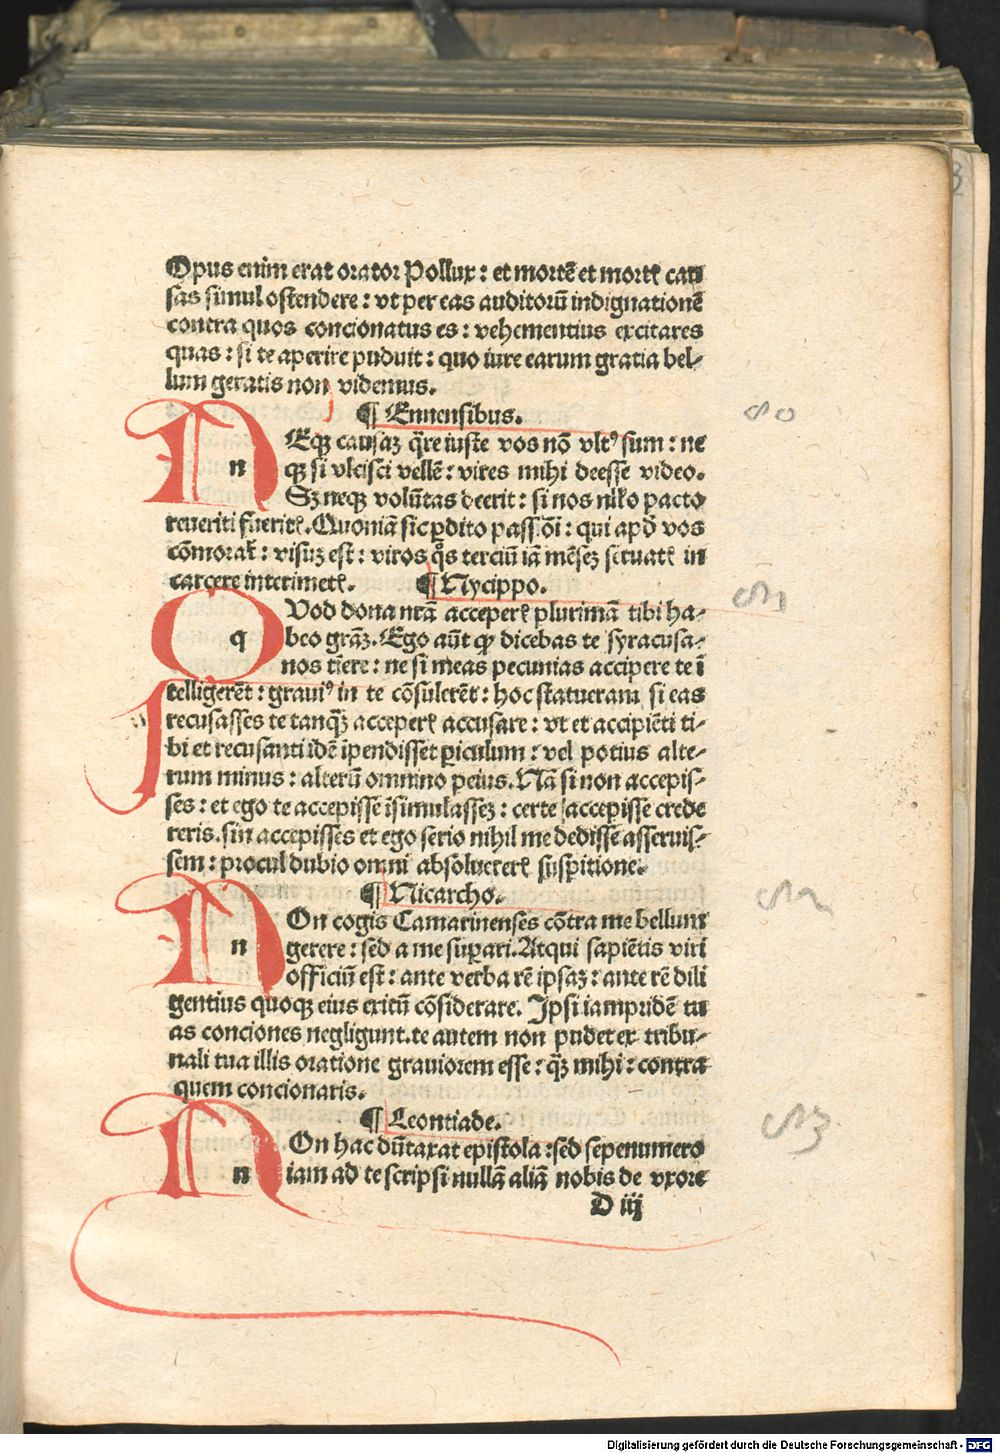 Opus enim erat orator Pollux: et mortē et mortꝭ cau
sas simul ostendere: vt per eas auditorū indignationē
contra quos concionatus es: vehementius excitares
quas: si te aperire puduit: quo iure earum gratia bel-
lum geratis non videmus.
¶ Ennensibus.
80
NEqꝫ causaꝫ q̄re iuste vos nō vltꝰ sum: ne
n qꝫ si vlcisci vellē: vires mihi deesse video.
Sꝫ neqꝫ volūtas deerit: si nos
reueriti fueritꝭ. Quoniā sic ꝑdito
cōmorat: visuꝫ est: viros q̄s terciū iā mēseꝫ seruatꝭ in
carcere interimetꝭ. ¶ Nycippo.
81
QVod dona nr̄a acceperꝭ plurimā tibi ha-
q beo grāꝫ. Ego aūt ꝙ dicebas te syracusa-
nos tīere: ne si meas pecunias accipere te ī
telligerēt: grauiꝰ in te cōsulerēt: hoc statueram si eas
recusasses te tanqꝫ̄ acceperꝭ accusare: vt et accipiēti ti-
bi et recusanti idē īpendisset ꝑiculum: vel potius alte-
rum minus: alterū omnino peius. Nā si non accepis-
ses: et ego te accepisse īsimulasseꝫ: certe accepisse crede
reris. sin accepisses et ego serio nihil me dedisse asseruis-
sem: procul dubio omni absoluererꝭ suspitione.
¶ Nicarcho.
82
NOn cogis Camarinenses cōtra me bellum
n gerere: sed a me suꝑari. Atqui sapiētis viri
officiū est: ante verba rē ipsaꝫ: ante rē dili
gentius quoqꝫ eius exitū cōsiderare. Ipsi iampridē tu
as conciones negligunt. te autem non pudet ex tribu-
nali tua illis oratione grauiorem esse: qꝫ̄ mihi: contra
quem concionaris.
¶ Leontiade.
83
NOn hac dūtaxat epistola: sed sepenumero
n iam ad te scripsi nullā aliā nobis de vxore
D iij
Digitalisierung gefördert durch die Deutsche Forschungsgemeinschaft - DFG